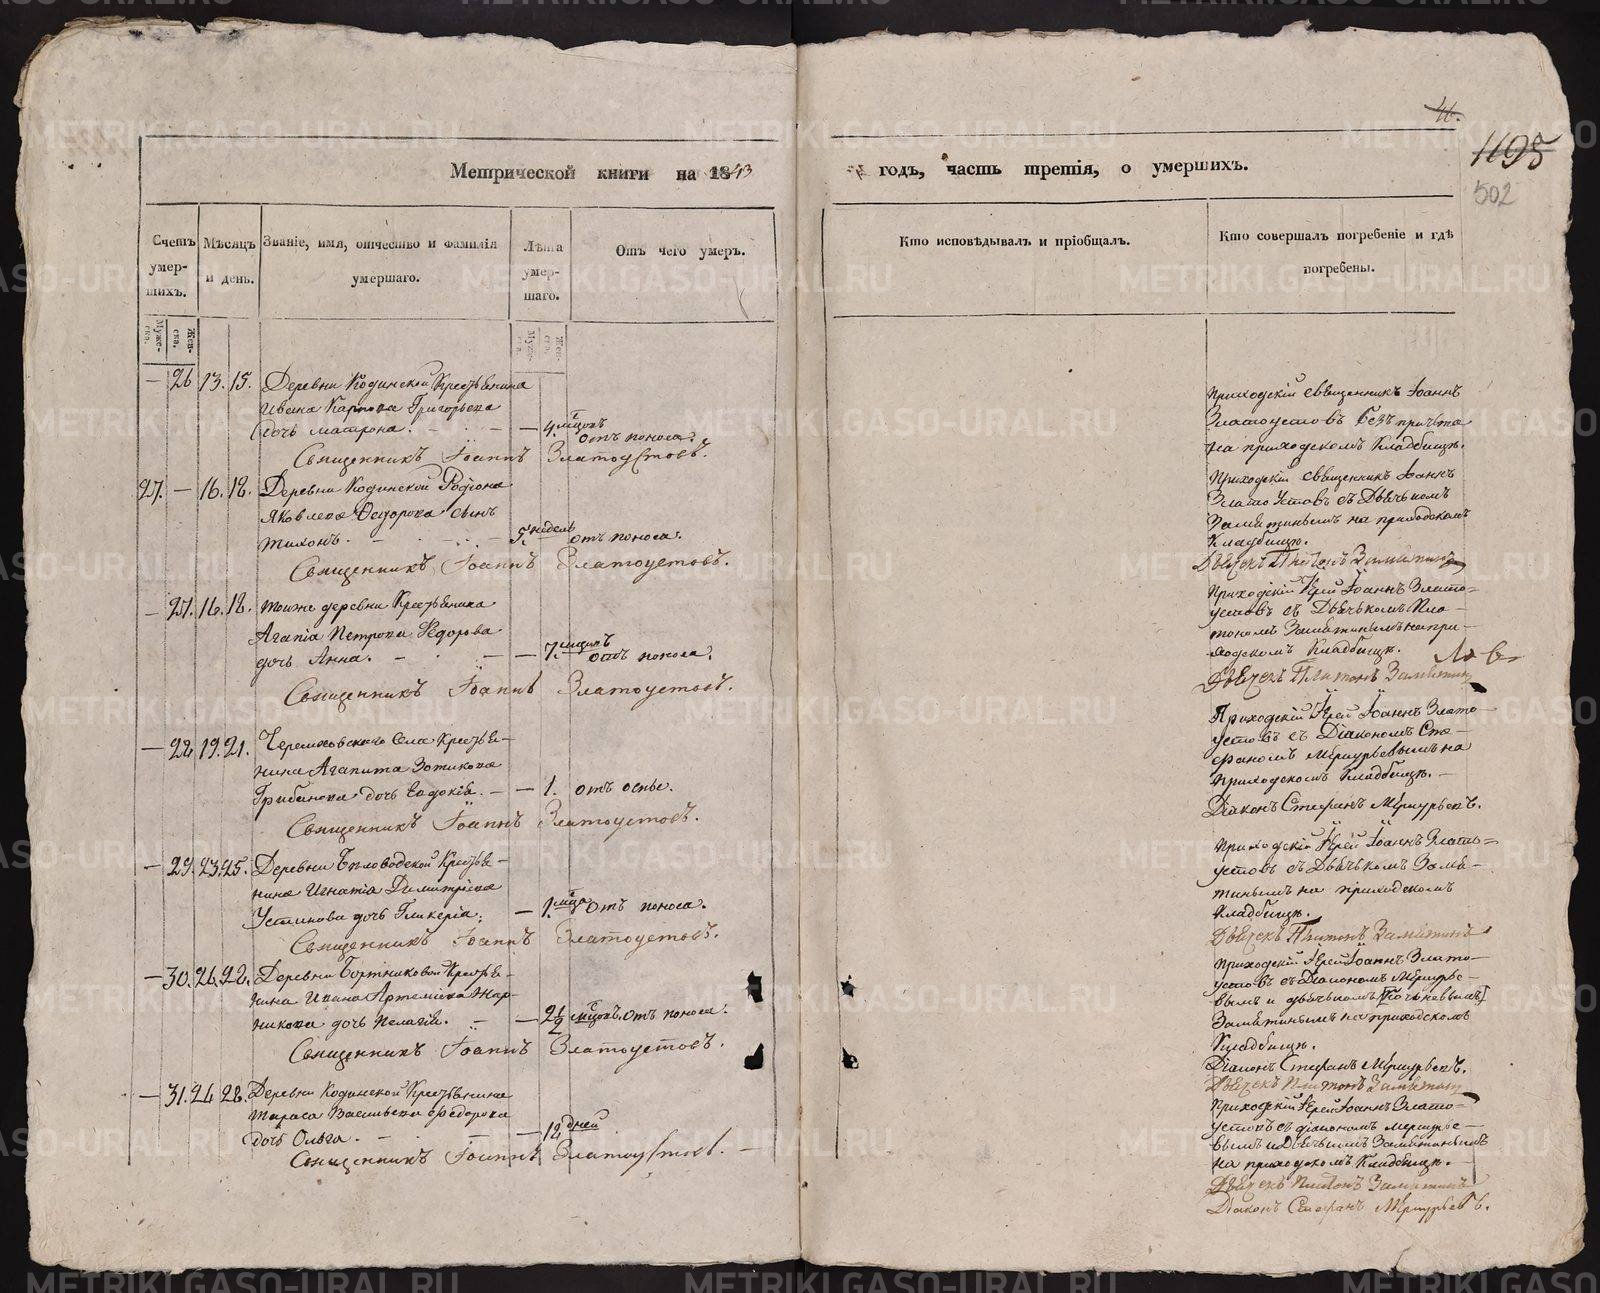 46.
1195
502
Метрической книги на 1843 годъ, часть третія, о умершихъ.
Счетъ умер- шихъ.
Мѣсяцъ и день.
Званіе, имя, отчество и фамилія умершаго.
Лѣта умер- шаго.
Отъ чего умеръ.
Кто исповѣдывалъ и пріобщалъ.
Кто совершалъ погребеніе и гдѣ погребены.
Муже- ска.
Жен- ска.
Муже- ска.
Жен- ска.
— 26 13. 15. Деревни Кодинской Крестьянина
Ивана Карпова Григорьева
дочь Матрона. — 4. мцовъ отъ поноса.
Священникъ Іоаннъ Златоустовъ.
Приходскій священникъ Іоаннъ
Златоустовъ безъ причта
на приходскомъ Кладбищѣ.
27. — 16. 18. Деревни Кодинской Родіона
Яковлева Ѳедорова сынъ
Тихонъ. — 5. недель отъ поноса.
Священникъ Іоаннъ Златоустовъ.
Приходскій священникъ Іоаннъ
Златоустовъ съ Дьячькомъ
Замятинымъ на приходскомъ
Кладбищѣ.
Дьячекъ Платонъ Замятинъ
— 27. 16. 18. Тоиже деревни Крестьянина
Агапіа Петрова Ѳедорова
дочь Анна. — 7. мцовъ отъ поноса.
Священникъ Іоаннъ Златоустовъ.
Приходскій Іерей Іоаннъ Злато=
устовъ съ Дьячькомъ Пла-
тономъ Замятинымъ на при-
ходскомъ Кладбищѣ.
Дьячекъ Платонъ Замятин
— 28. 19. 21. Черемховскаго Села Крестья-
нина Агапита Зотикова
Грибанова дочь Евдокія. — 1. отъ оспы.
Священникъ Іоаннъ Златоустовъ.
Приходскій Іерей Іоаннъ Злато-
устовъ съ Діакономъ Сте-
фаномъ Меркурьевымъ на
приходскомъ Кладбищѣ. —
Діаконъ Стефанъ Меркурьевъ.
— 29. 23. 25. Деревни Беловодской Крестья-
нина Игнатіа Димитріева
Устинова дочь Гликеріа. — 1. мца отъ поноса.
Священникъ Іоаннъ Златоустовъ.
Приходскій Іерей Іоаннъ Злато=
устовъ съ Дьячькомъ Замя-
тинымъ на приходскомъ
Кладбищѣ.
Дьячекъ Платонъ Замятинъ
— 30. 26. 28. Деревни Бортниковой Крестья-
нина Ивана Артеміева Жар-
никова дочь Пелагія. — 2½ мцовъ. отъ поноса.
Священникъ Іоаннъ Златоустовъ.
Приходскій Іерей Іоаннъ Злато-
устовъ съ Діакономъ Меркурье-
вымъ и дьячькомъ
Замятинымъ на приходскомъ
Кладбищѣ.
Діаконъ Стефанъ Меркурьевъ.
Дьячекъ Платонъ Замятинъ
— 31. 24 28. Деревни Кодинской Крестьянина
Тараса Васильева Ѳедорова
дочь Ольга. — 12 дней
Священникъ Іоаннъ Златоустовъ. —
Приходскій Іерей Іоаннъ Злато=
устовъ съ діакономъ Меркурье-
вымъ и Дьячькомъ Замятинымъ
на приходскомъ Кладбищѣ.
Дьячекъ Платонъ Замятинъ
Діаконъ Стефанъ Меркурьевъ.
METRIKI.GASO-URAL.RU